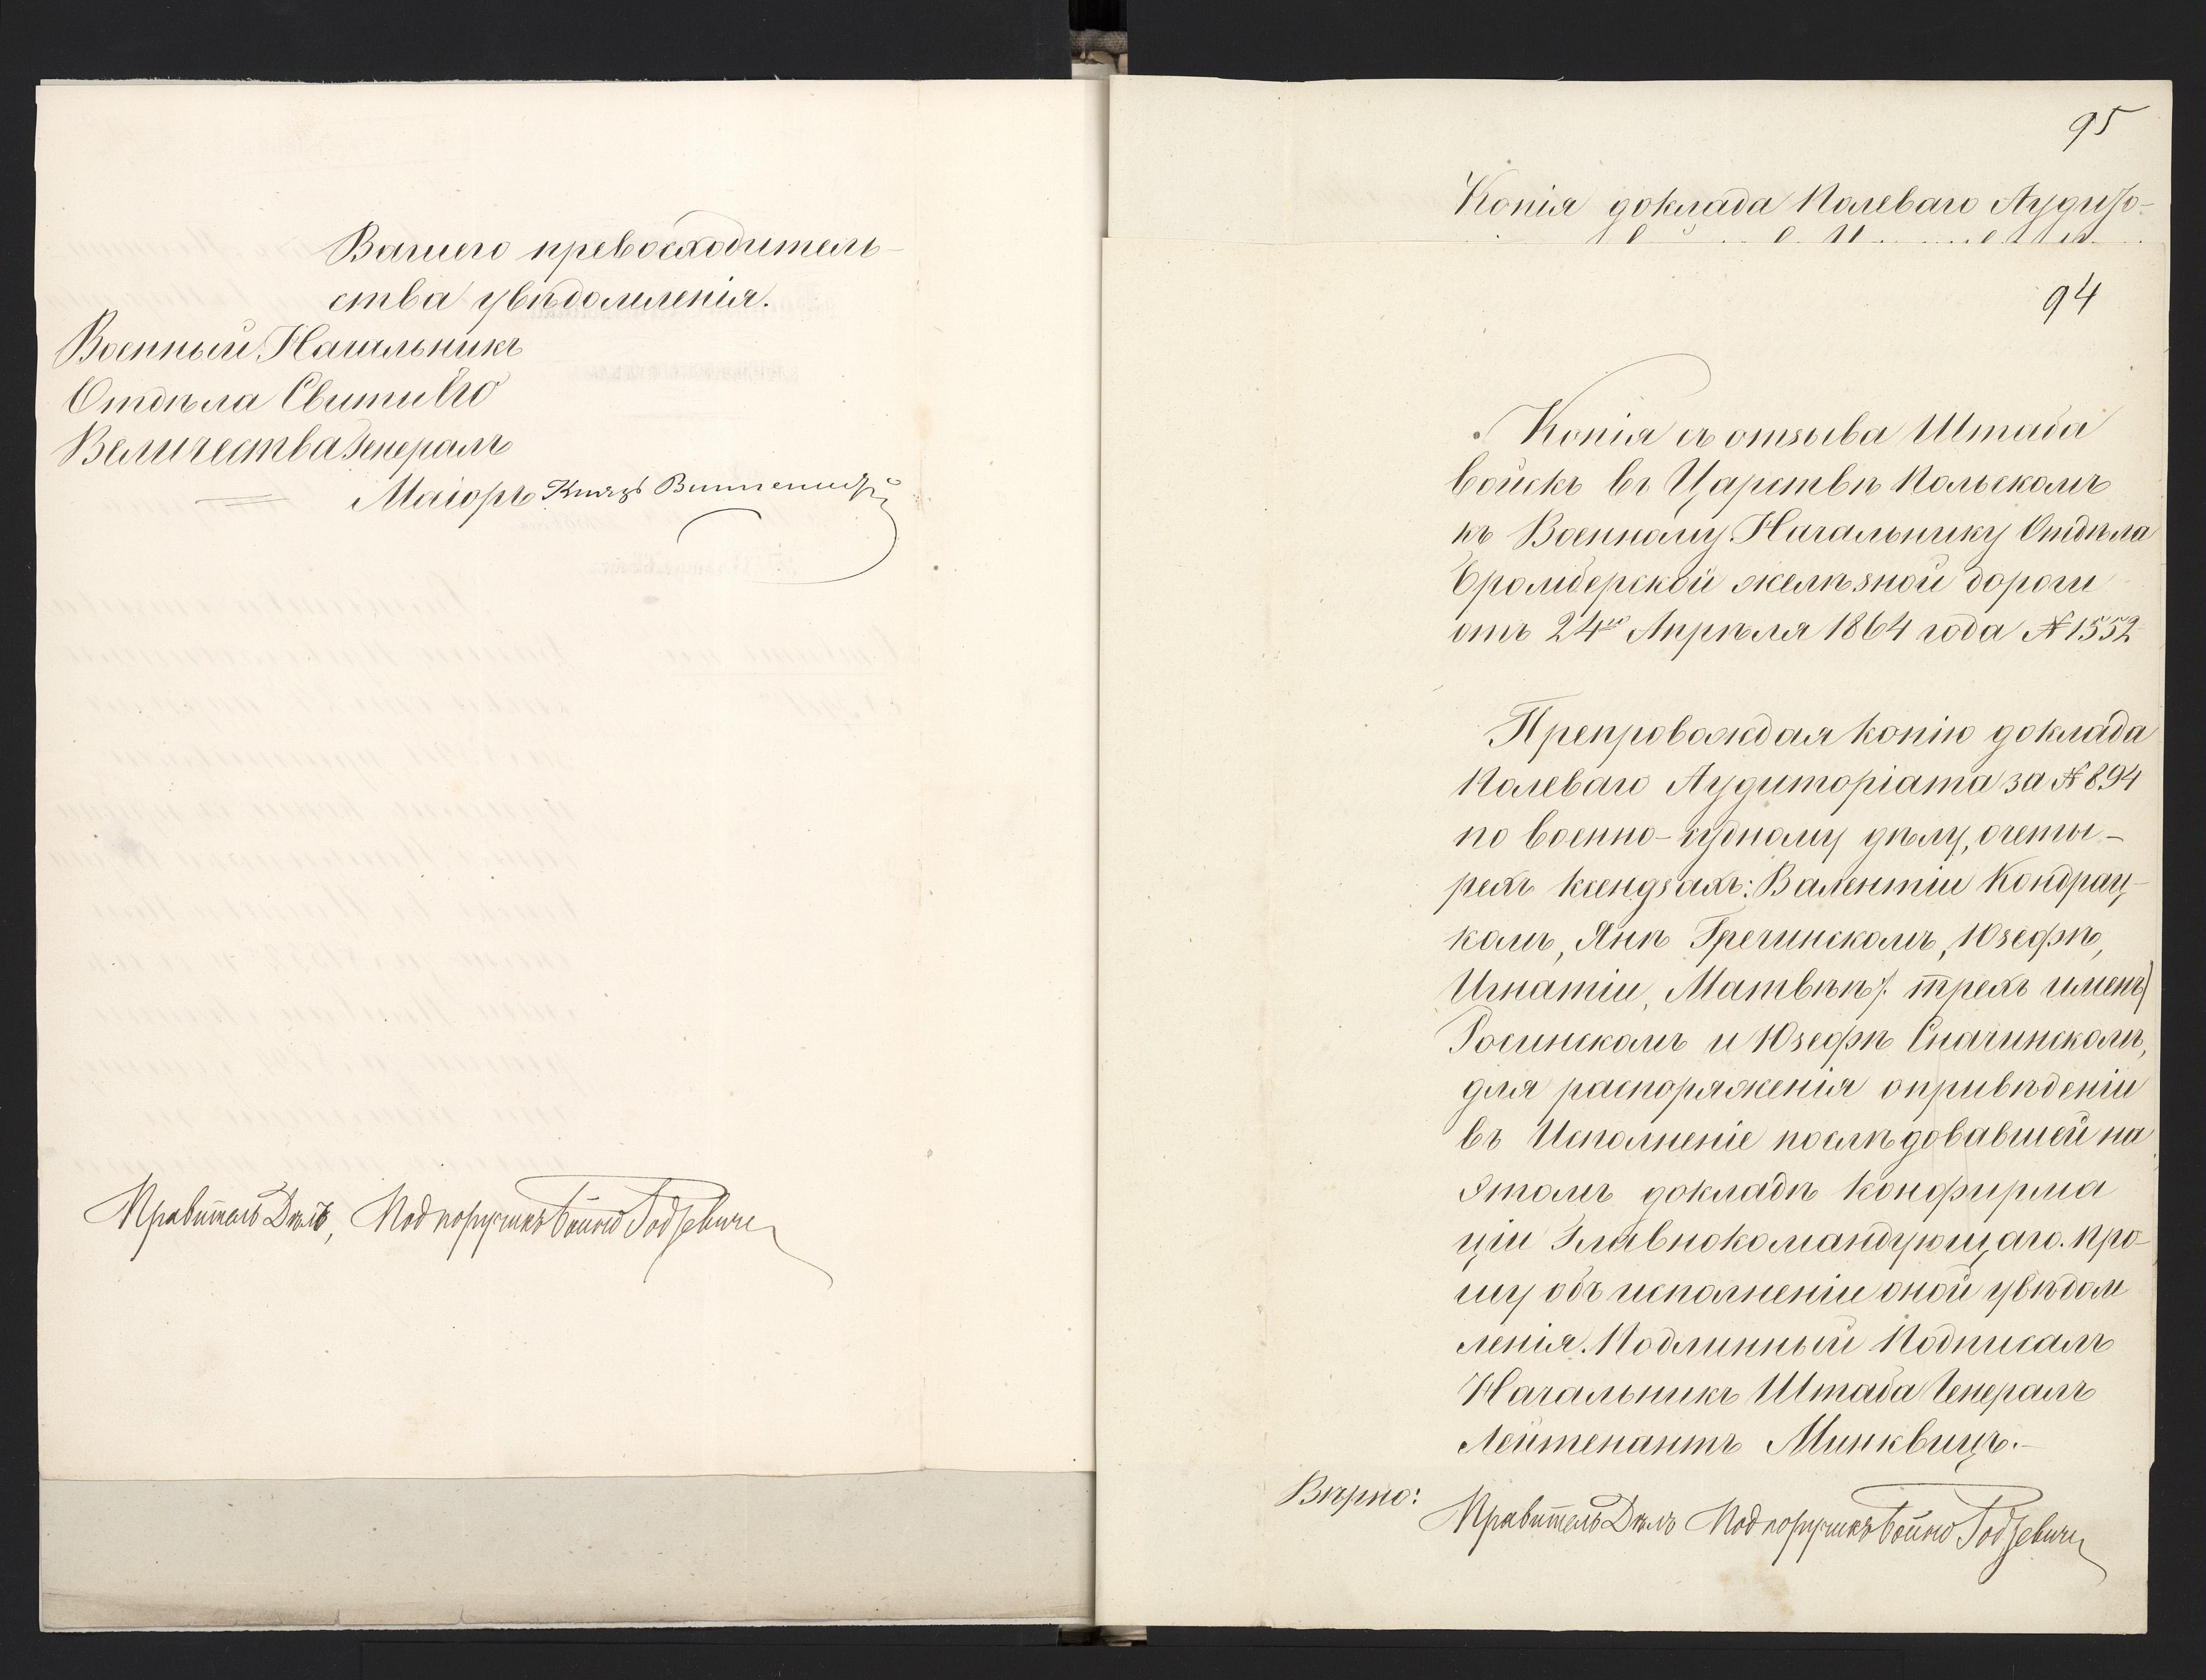 Вашего превосходитель-
ства увѣдомленія.
Военный Начальникъ
Отдѣла Свиты Его
Величества Генералъ
Маіоръ Князь
Правитель Дѣлъ, Подпоручикъ Войно Родзевичъ
95
Копія доклада Полеваго Аудито-
94
Копія съ отзыва Штаба
войскъ въ Царствѣ Польскомъ
къ Военному Начальнику Отдѣла
Бромберской желѣзной дороги
отъ 24го Апрѣля 1864 года № 1552
Препровождая копію доклада
Полеваго Аудиторіата за № 894
по военно-судному дѣлу, о четы-
рехъ ксендзахъ: Валентіи Кондрац-
комъ, Янѣ Гречинскомъ, Юзефѣ,
Игнатіи, Матвѣѣ /: трехъ именъ)
Росинскомъ и Юзефѣ Спачинскомъ,
для распоряженія о привѣденіи
въ Исполненіе послѣдовавшей на
этомъ докладѣ конфирма
ціи Главнокомандующаго. Про-
шу объ исполненіи оной увѣдом
ленія. Подлинный Подписалъ
Начальникъ Штаба Генералъ
Лейтенантъ Минквицъ.-
Вѣрно: Правитель Дѣлъ Подпоручикъ Войно Родзевичъ